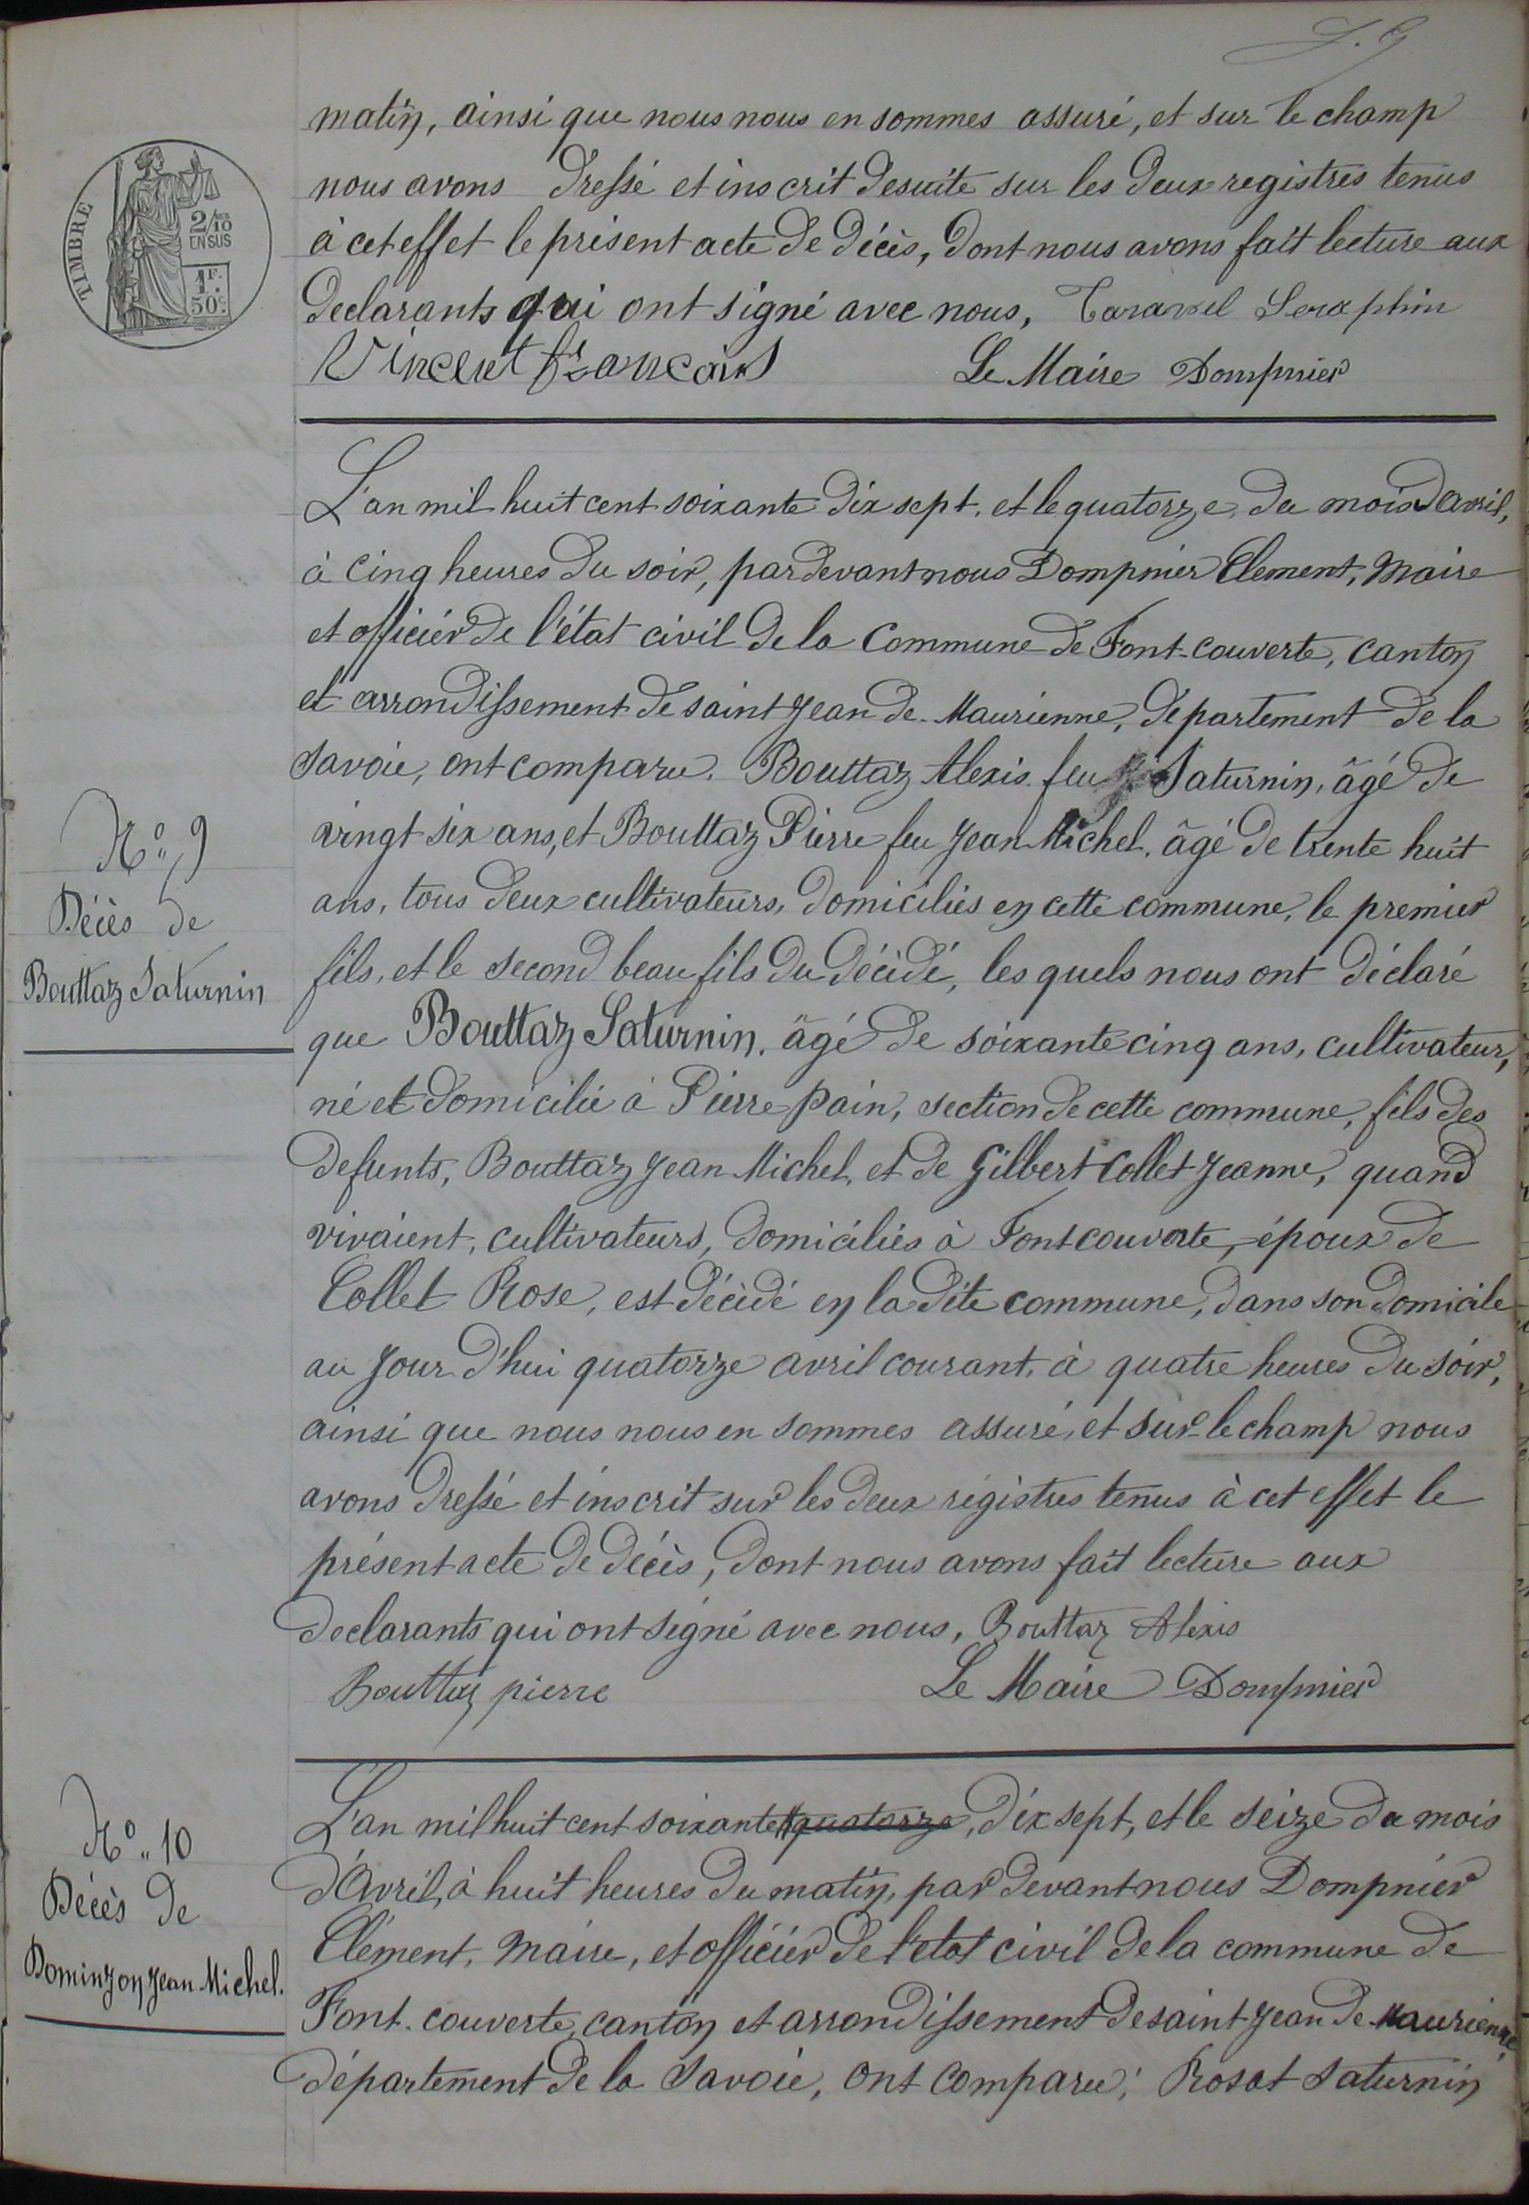 matin, ainsi que nous nous en sommes assuré, et sur le champ
nous avons dressé et inscrit desuite sur les deux registres tenus
à cet effet le présent acte de décès, dont nous avons fait lecture aux
declarants qui ont signé avec nous, Taravel Seraphin
Vincent françois Le Maire Dompnier
TIMBRE
2/10 EN SUS
1F. 50c.
L'an mil huit cent soixante dix sept, et le quatorze, du mois d'avril,
à cinq heures du soir, pardevant nous Dompnier Clement, Maire
et officier de l'état civil de la Commune de Font-couverte, canton
et arrondissement de saint Jean de Maurienne, departement de la
savoie, ont comparu. Bouttaz Alexis feu Saturnin, âgé de
vingt six ans, et Bouttaz Pierre feu Jean Michel, âgé de trente huit
ans, tous deux cultivateurs, domiciliés en cette commune, le premier
fils, et le second beau fils du décédé, les quels nous ont déclaré
que Bouttaz Saturnin, âgé de soixante cinq ans, cultivateur,
né et domicilié à Pierre pain, section de cette commune, fils des
defunts, Bouttaz Jean Michel, et de Gilbert Collet Jeanne, quand
vivaient, cultivateurs, domiciliés à Fontcouverte, époux de
Collet Rose, est décédé en la dite commune, dans son domicile
au jour d'hui quatorze avril courant, à quatre heures du soir,
ainsi que nous nous en sommes assuré, et sur-le champ nous
avons dressé et inscrit sur les deux régistres tenus à cet effet le
présent acte de décès, dont nous avons fait lecture aux
declarants qui ont signé avec nous, Bouttaz Alexis
Bouttaz pierre Le Maire Dompnier
N° 9
Décès de
Bouttaz Saturnin
L'an mil huit cent soixante quatorze, dix sept, et le seize du mois
d'Avril, à huit heures du matin, par devant nous Dompnier
Clément, Maire, et officier de l'etat civil de la commune de
Font-couverte, canton et arrondissement de saint Jean de Maurienne,
département de la Savoie, ont comparu; Rosat Saturnin
N° 10
Décès de
Dominjon Jean Michel.